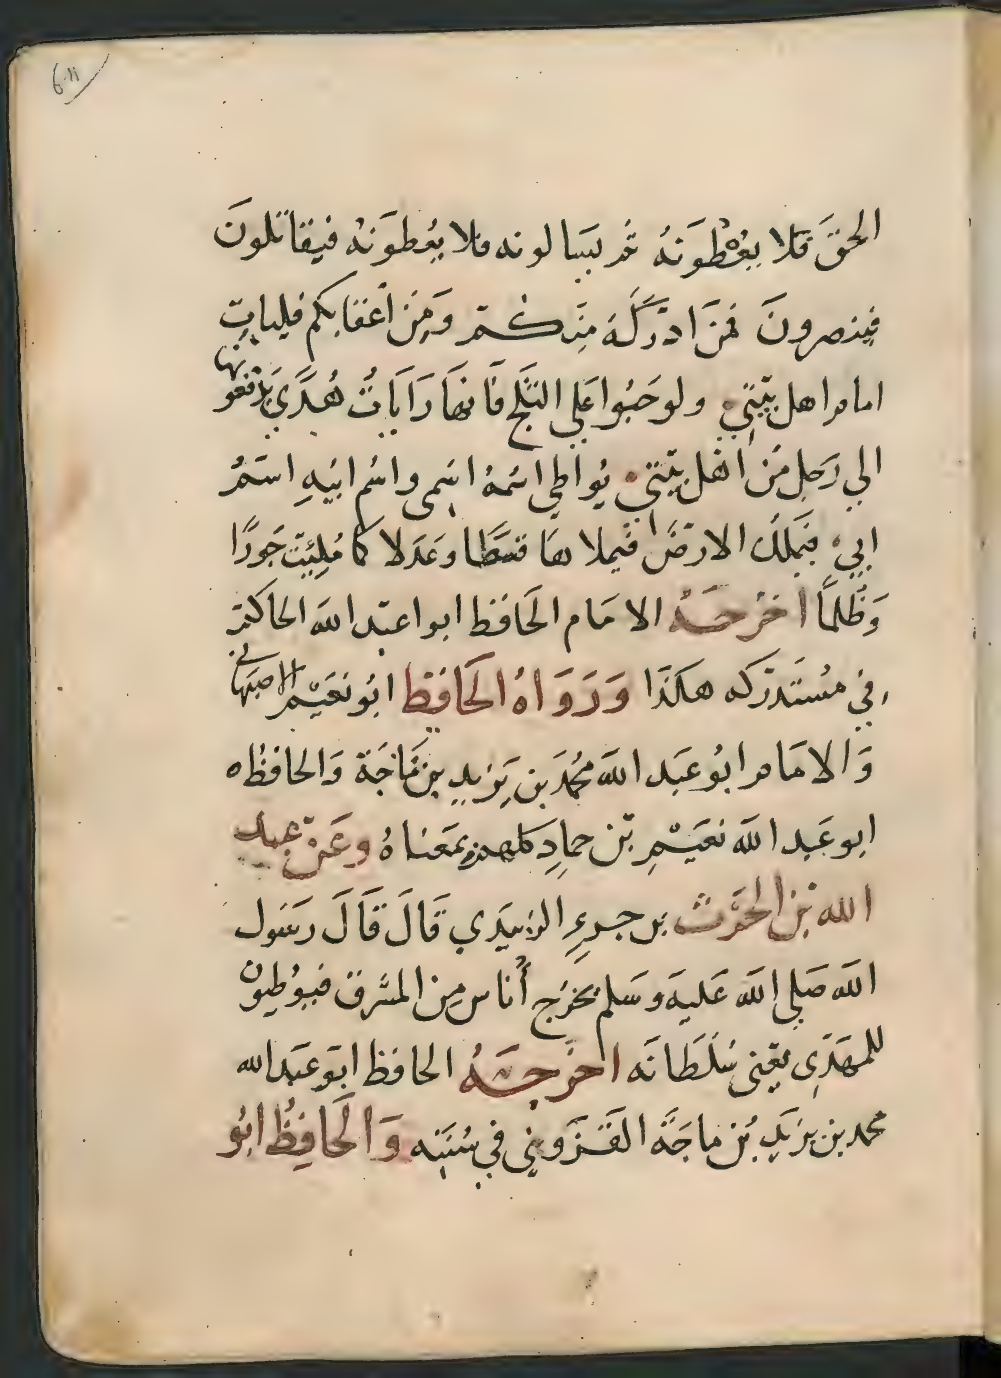 الحقَ فَلا يعْطُوَنهُ ثم يسَالونه فلا يُعْطوَنهُ فيقاتَلونَ
فينصرونَ فمَنَ ادرَكَهُ مِنكم وَمِن أعقابكم فليات
امام اهل بيْتي ولو حَبُوا عَلي الثَلج فَانهَا رَايَاتُ هُدَي يدفعونها
الي رَجل مِن اهْل بيْتي يُواطي اسْمهُ اسْمي واسْم ابيْهِ اسْمُ
ابي فيَملك الارضَ فيملاهَا قسطَا وعَدلا كما مُليَت جَورًا
وَظُلمًا اخرَجَهُ الامَام الحَافظ ابوا عبد الله الحاكم
في مسْتَدرَكه هكذَا وَرَوَاهُ الحَافِظ ابُو نعَيْم الاصبهاني
وَالامَام ابُو عبَد الله محُمَد بن يَزيدِ بن مَاجَة وَالحافظُ ه
ابو عَبد الله نعَيَمْ بن حمادِ كلهم بمَعَناهُ وعَنْ عبد
الله بن الحَرث بن جزءِ الزبيَدي قَالَ قَالَ رَسَول
الله صَلي الله عَليهَ وسَلم يخرَج أُناس مِن المشَرق فيوُطيون
للمهَدي يعني سُلطَانَه اخرَجَهُ الحافظ ابَو عَبَد الله
محمد بن يزيَد بُن ماجَة القَزوِيني في سُنَنِه وَالحَافِظُ ابُو